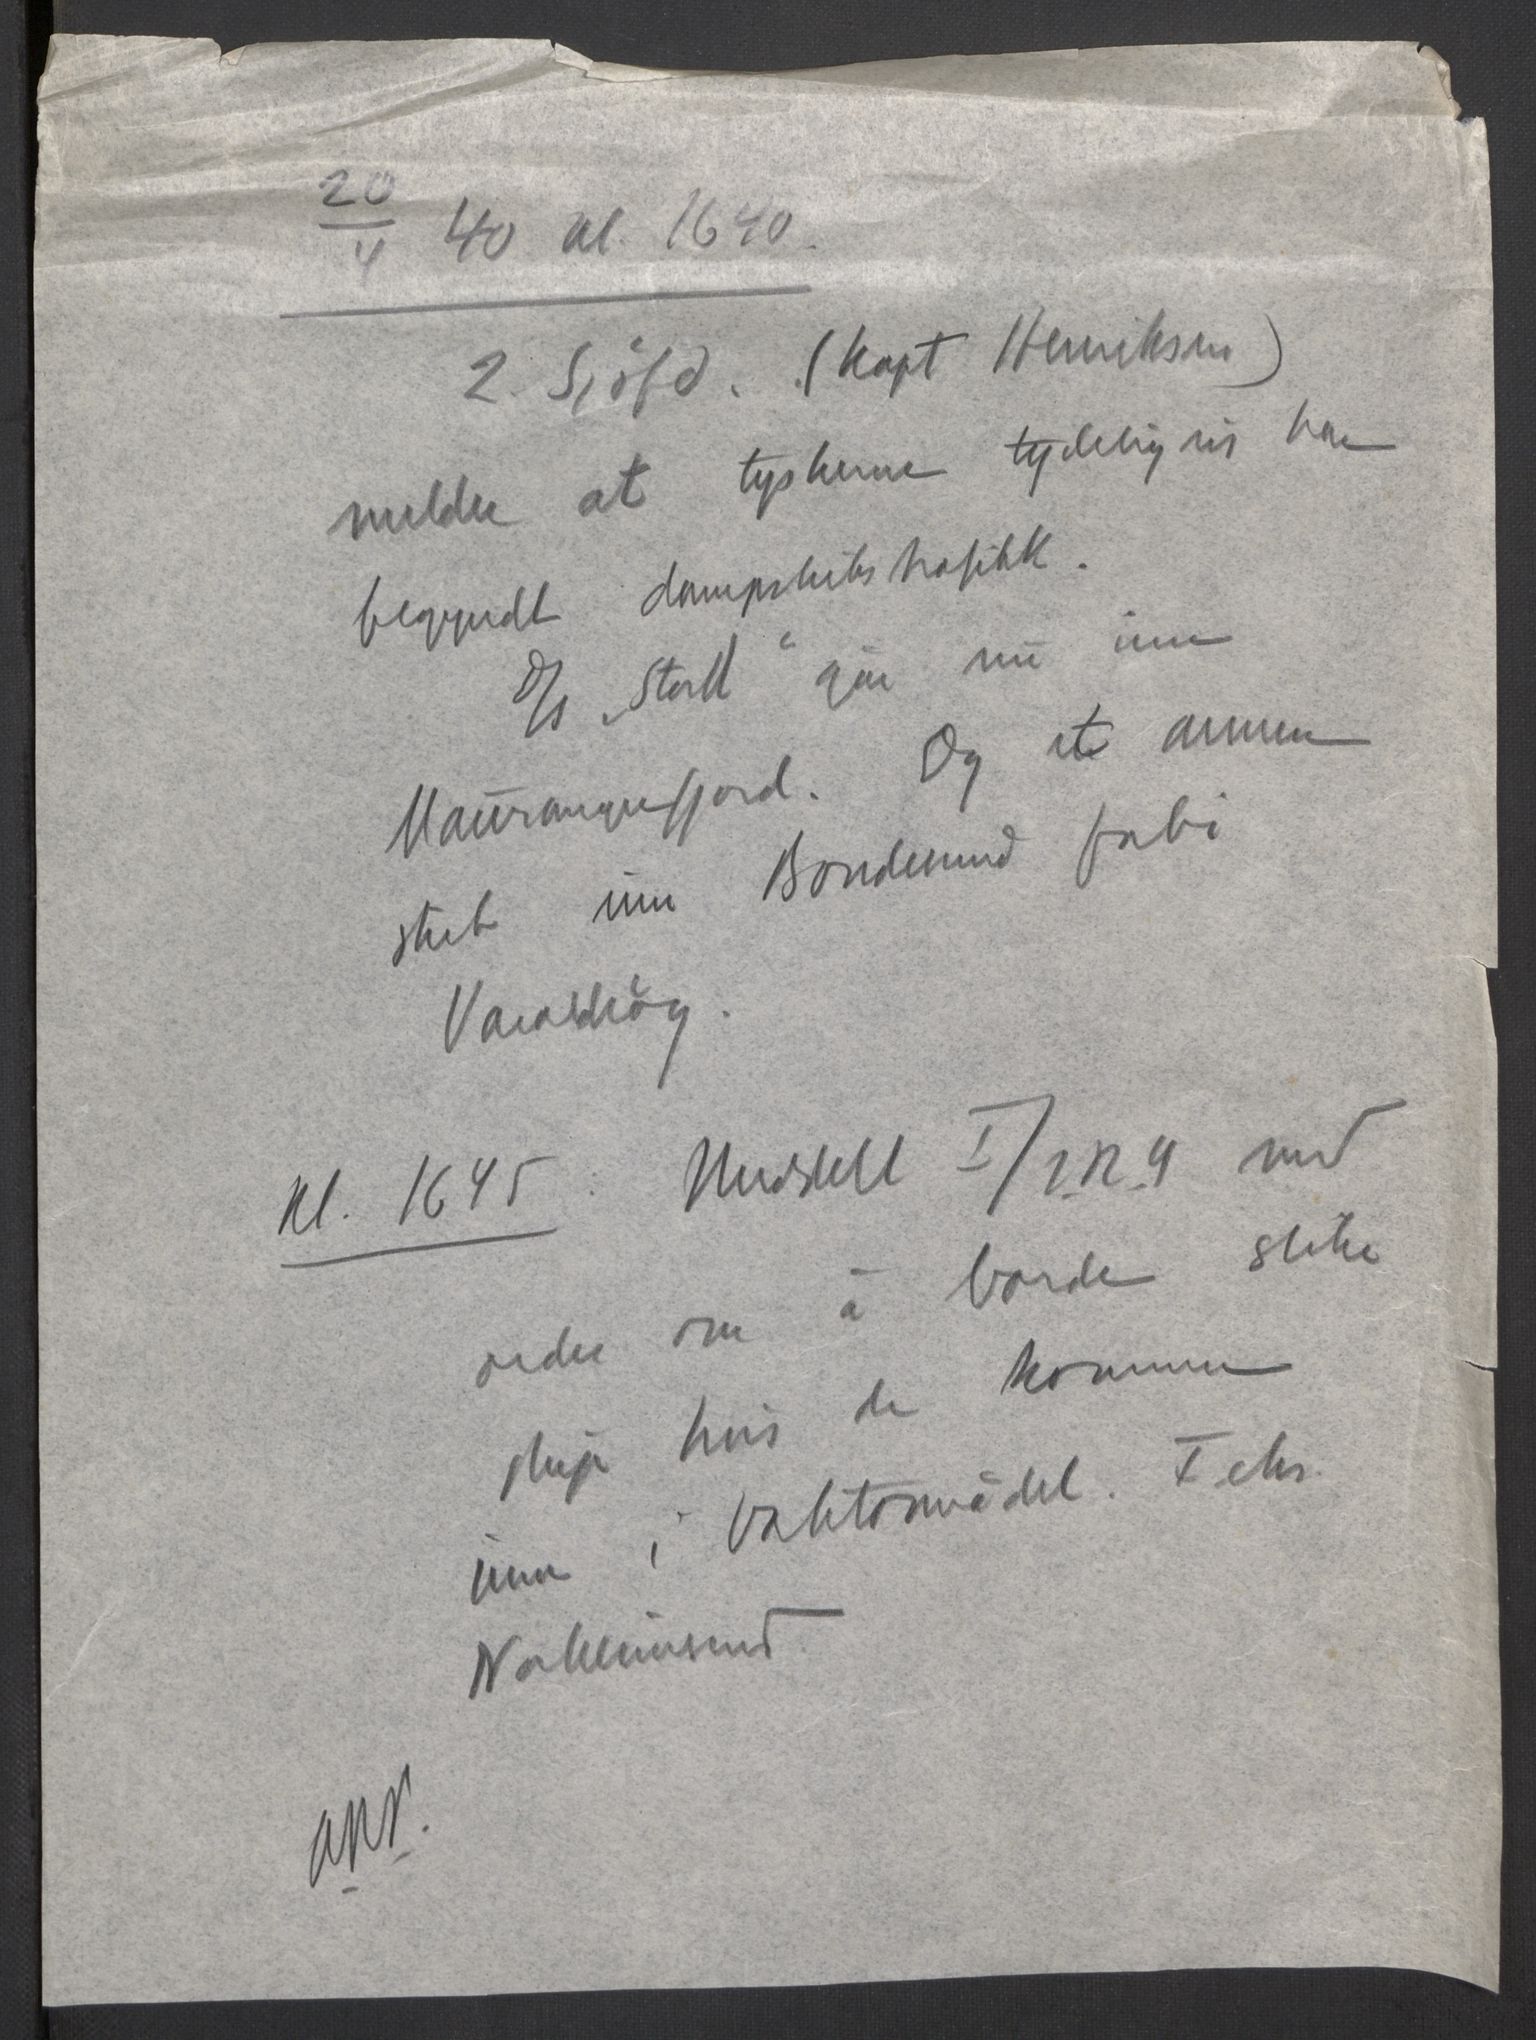 20/4 40 kl. 1640.
2. Sjöfd. (kapt Henriksen)
melder at tyskerne tydeligvis har
begyndt dampskibstrafikk.
D/S „Stord" går nu inn
Maurangerfjord. Og et annen
skib inn Bondesund forbi
Varaldsöy.
Kl. 1645 : Meddelt I/I.R.4 med
ordre om å borde slike
skip hvis de kommer
inn i vaktområdet. I eks.
Norheimsund